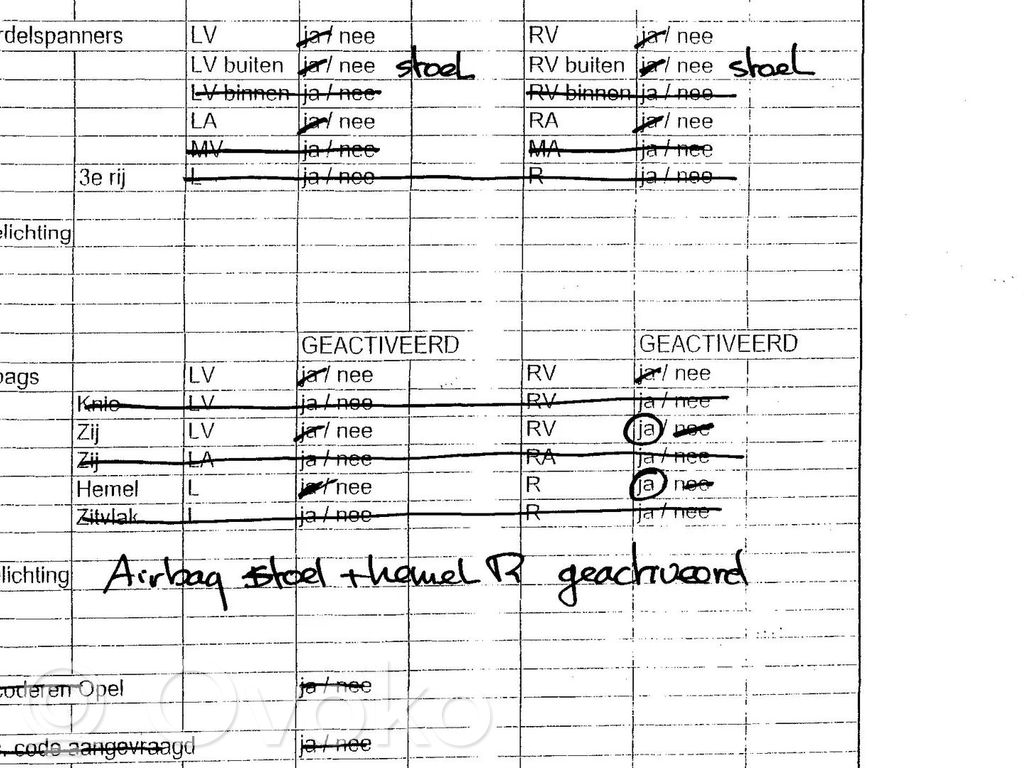 rdelspanners LV ja / nee RV ja / nee
LV buiten ja / nee stoel RV buiten ja / nee stoel
LV binnen ja / nee RV binnen ja / nee
LA ja / nee RA ja / nee
MV ja / nee MA ja / nee
3e rij L ja / nee R ja / nee
elichting
GEACTIVEERD GEACTIVEERD
bags LV ja / nee RV ja / nee
Knie LV ja / nee RV ja / nee
Zij LV ja / nee RV ja / nee
Zij LA ja / nee RA ja / nee
Hemel L ja / nee R ja / nee
Zitvlak L ja / nee R ja / nee
elichting Airbag stoel + hemel R geactiveerd
coderen Opel ja / nee
. code aangevraagd ja / nee
© Ovoko